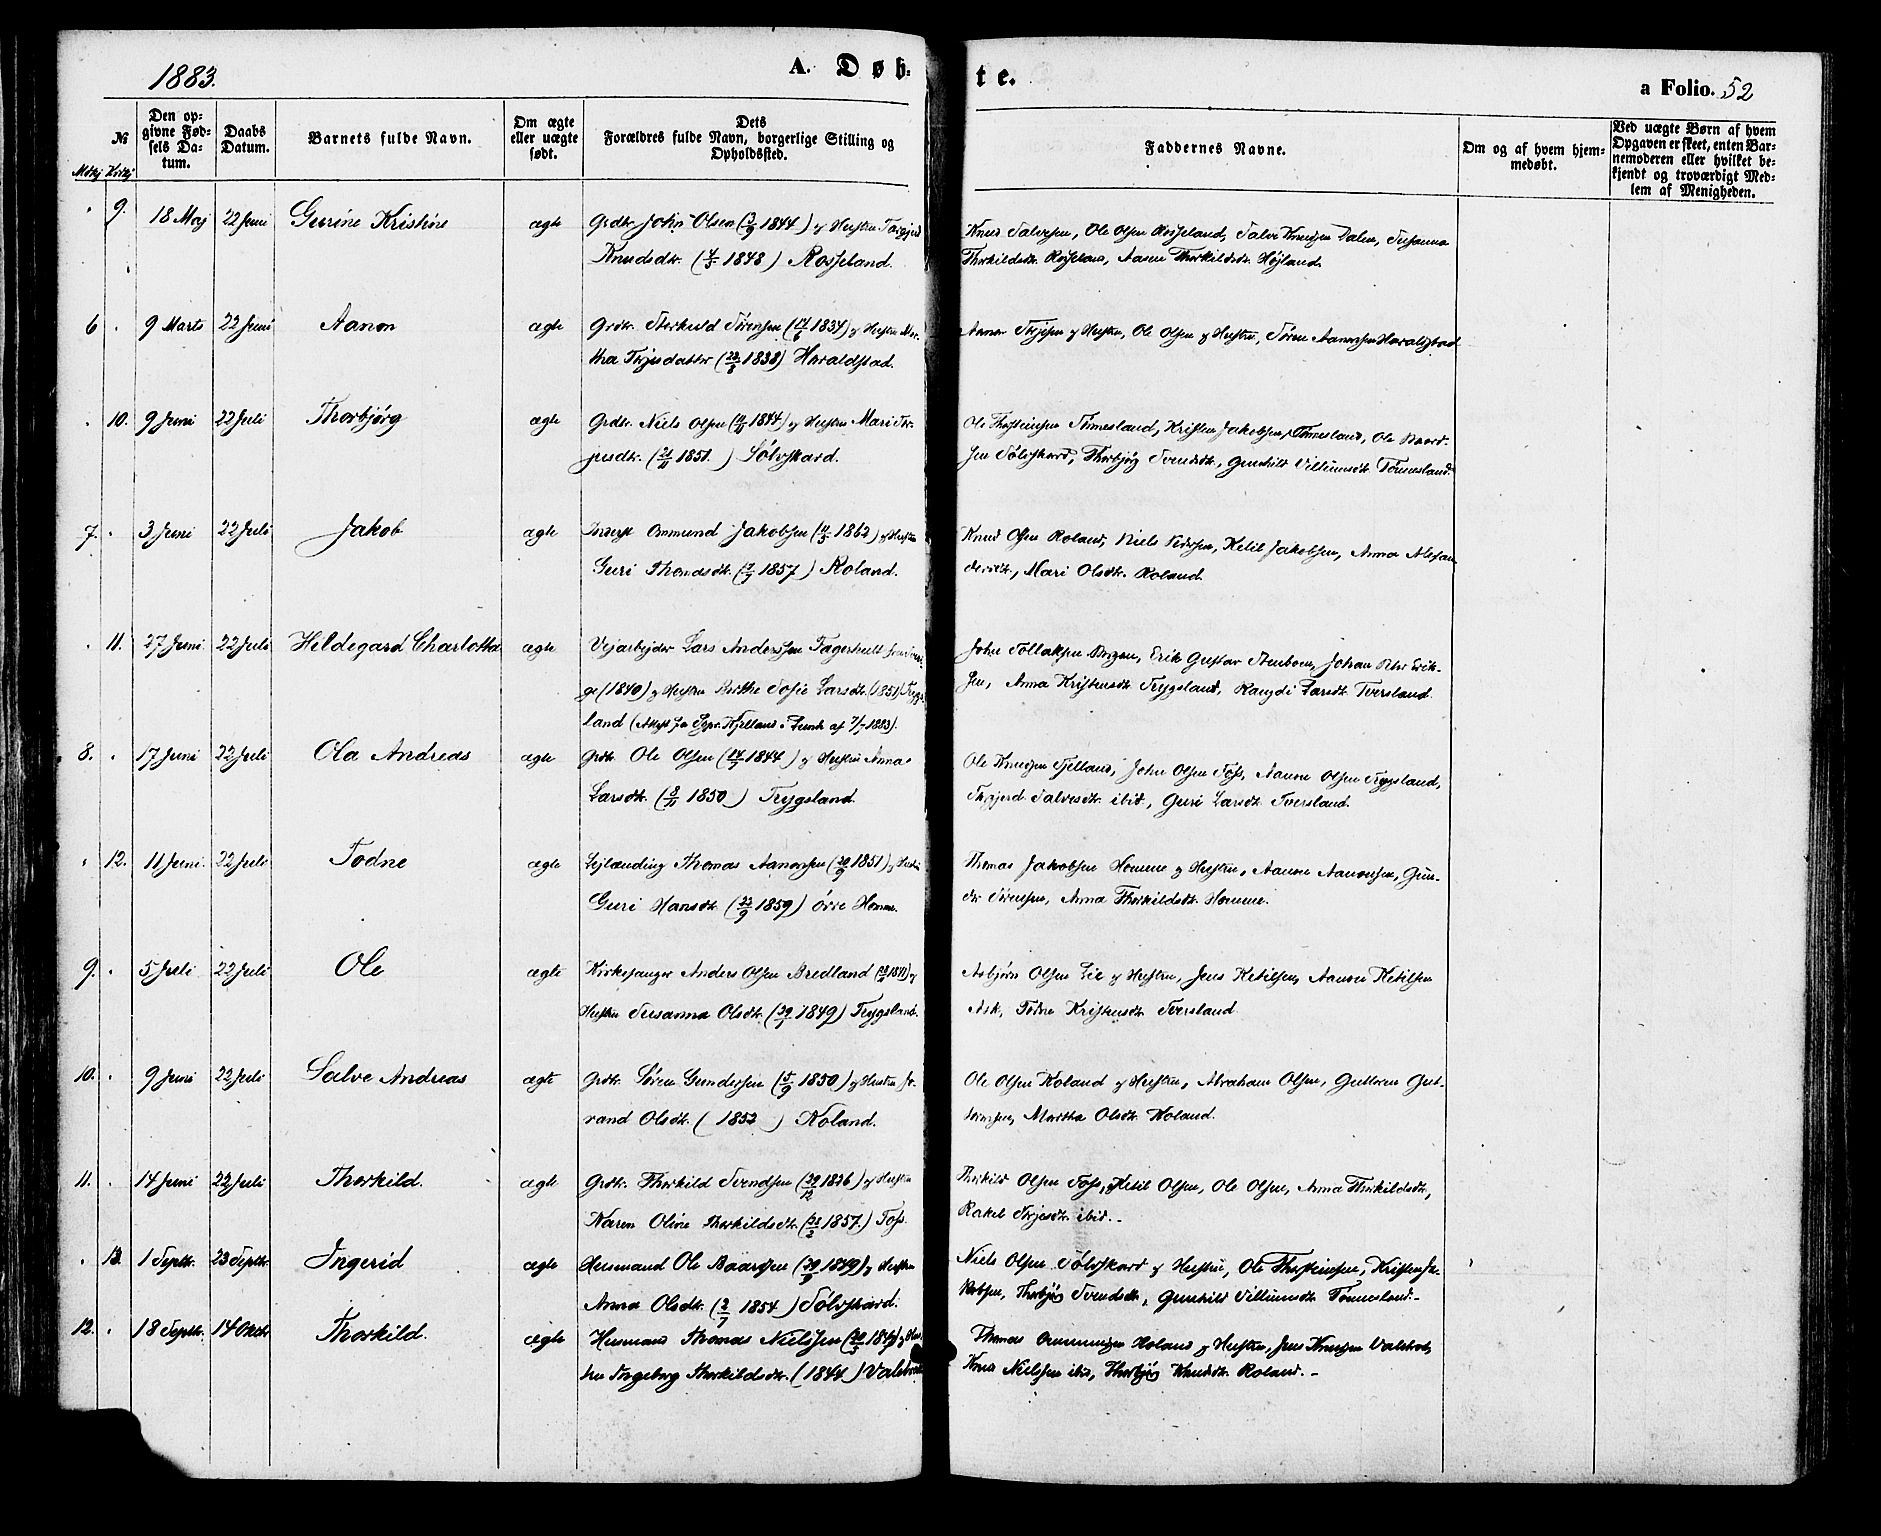 1883.
A. Døb-
te.
a Folio. 52
№
Mdkj Kvkj
Den op-
givne Fød-
sels Da-
tum.
Daabs
Datum.
Barnets fulde Navn.
Om ægte
eller uægte
født.
Dets
Forældres fulde Navn, borgerlige Stilling og
Opholdssted.
Faddernes Navne.
Om og af hvem hjem-
medøbt.
Ved uægte Børn af hvem
Opgaven er skeet, enten Bar-
nemoderen eller hvilket be-
kjendt og troværdigt Med-
lem af Menigheden.
9. 18 Maj 22 Juni Gurine Kristine ægte Grdbr. John Olsen 1844) og Hustru
Knudsdtr. 1848) Rosseland.
Knud Salvesen, Ole Olsen Rosseland, Salve Knudsen Dalen, Susanna
Thorkildsdtr. Rosseland, Aasne Thorkildsdtr. Højland.
6 9 Marts 22 Juni Aanon ægte Grdbr. Sørensen 1834) og Hustru Mar-
tha Terjesdatter 1838) Haraldstad.
Aanon Terjesen og Hustru, Ole Olsen og Hustru, Søren Aanonsen Haraldstad
10. 9 Juni 22 Juli Thorbjørg ægte Grdbr. Niels Olsen 1844) og Hustru Mari Ter-
jesdtr. 1851.) Sølvskard.
Ole Thorsteinsen Tønnesland, Kristen Jakobsen Tønnesland, Ole Baard-
sen Sølvskard, Thorbjørg Svendsdtr., Gunhild Villumsdtr. Tønnesland.
7. 3 Juni 22 Juli Jakob ægte Inderst Ommund Jakobsen 1862) og Hustru
Guri Thomasdtr. 1857) Roland.
Knud Olsen Roland, Niels Pedersen, Ketil Jakobsen, Anna Alexan
dersdtr., Mari Olsdtr. Roland.
11. 27 Juni 22 Juli Hildegard Charlotha ægte Vejarbejder Lars Anderssen Fagerhult
ge (1840) og Hustru Berthe Sofie Larsdtr. (1851) Tryg-
land
John Tollaksen Eric Gustav Stenboem, Johan Peter Erik-
sen, Anna Kristensdtr. Trygsland, Rangdi Larsdtr. Tversland.
8. 17 Juni 22 Juli Ola Andreas ægte Grdbr. Ole Olsen 1844) og Hustru Anna
Larsdtr. 1850) Trygsland.
Ole Knudsen Fjelland, John Olsen Foss, Aanon Olsen Trygsland,
Salvesdtr. ibid, Guri Larsdtr. Tversland.
12. 11 Juni. 22 Juli Todne ægte Lejlænding Thomas Aanonsen 1851) og Hustru
Guri Hansdtr. 1859) øvre Homme.
Thomas Jakobsen Homme og Hustru, Aanon Aanonsen, Gun-
der Sørensen, Anna Thorkildsdtr. Homme.
9. 5 Juli 22 Juli Ole ægte Kirkesanger Anders Olsen Bredland og
Hustru Susanna Olsdtr. 1849) Trygsland.
Asbjørn Olsen Lie og Hustru, Jens Ketilsen, Aanon Ketilsen
Ask, Todne Kristensdtr. Tversland.
10. 9 Juni 22 Juli Salve Andreas ægte Grdbr. Søren Gundersen 1850) og Hustru Jo-
rand Olsdtr. (1852) Roland.
Ole Olsen Roland og Hustru, Abraham Olsen, Guttorm Gut-
tormsen, Martha Olsdtr. Roland.
11. 14 Juni 22 Juli Thorkild. ægte Grdbr. Thorkild Svendsen 1836) og Hustru
Karen Oline Thorkildsdtr. 1857.) Foss.
Thorkild Olsen Foss, Ketil Olsen, Ole Olsen, Anna Thorkildsdtr.,
Rakel Terjesdtr. ibid.
13. 1 Septbr. 23 Septbr. Ingerid ægte Husmand Ole Baardsen 1849) og Hustru
Anna Olsdtr. 1854) Sølvskard.
Niels Olsen Sølvskard og Hustru, Ole Thorsteinsen, Kristen Ja-
kobsen, Thorbjørg Svendsdtr., Gunhild Villumsdtr. Tønnesland.
12. 18 Septbr. 14 Oktbr Thorkild. ægte Husmand Thomas Nielssen og Hus-
tru Ingeborg Thorkildsdtr. (1844)
Thomas Ommundsen Roland og Hustru, Jens Knudsen
Knud Nielssen ibid, Thorbjørg Knudsdtr. Roland.